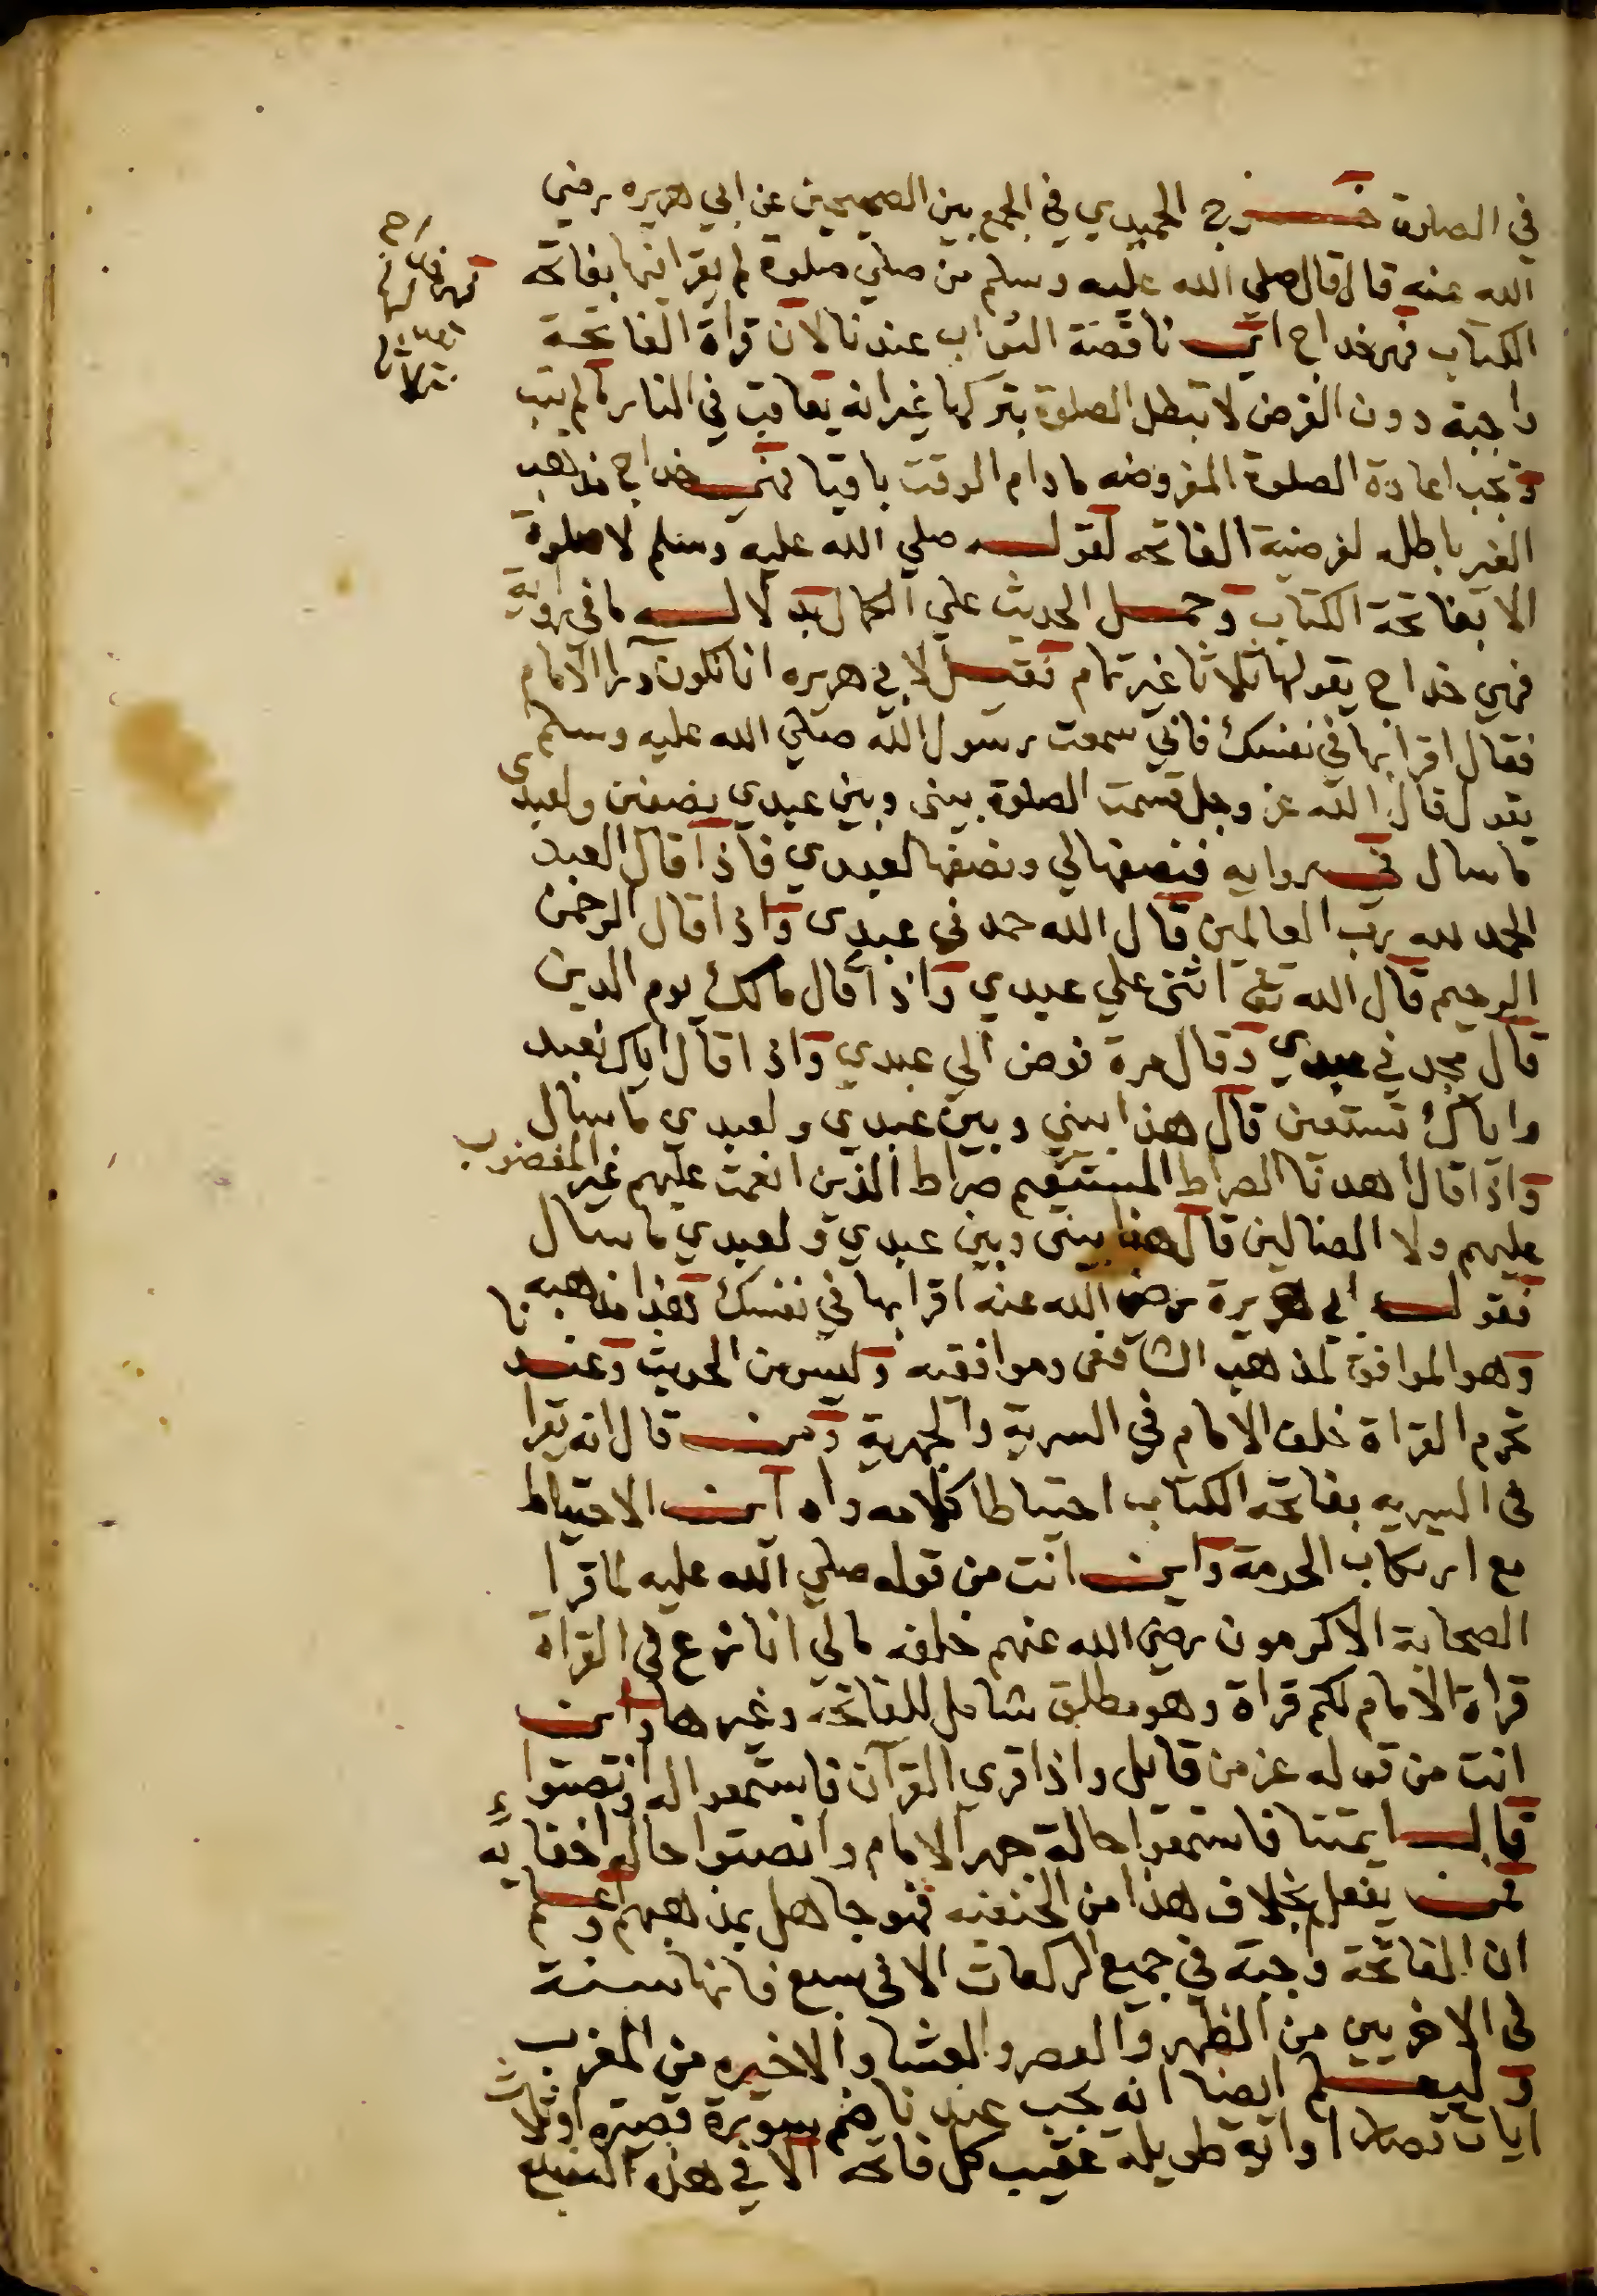 في الصلوة خرج الحميدي في الجمع بين الصحيحين عن ابي هريره رضي
الله عنه قال قال صلي الله عليه وسلم من صلي صلوة لم يقرا فيها بفاتحة
الكتاب فهي خداج اي ناقصة الثواب عندنا لان قراة الفاتحة
واجبة دون الفرض لا تبطل الصلوة بتركها غير انه يعاقب في النار ما لم يتب
وتجب اعادة الصلوة المفروضه مادام الوقت باقيا فمعني خداج مذهب
الغير باطله لفرضية الفاتحه لقوله صلي الله عليه وسلم لا صلوة
الا بفاتحة الكتاب وحمل الحديث علي الكمال بدلالة ما في رواية
فهي خداج يقولها ثلاثا غير تمام فقيل لابي هريره انا نكون ورا الامام
فقال اقرا بها في نفسك فاني سمعت رسول الله صلي الله عليه وسلم
يقول قال الله عز وجل قسمت الصلوة بيني وبين عبدي نصفين ولعبدي
ما سال في روايه فنصفها لي ونصفها لعبدي فاذا قال العبد
الحمد لله رب العالمين قال الله حمدني عبدي واذا قال الرحمن
الرحيم قال الله تع اثني علي عبدي واذا قال مالك يوم الدين
قال مجدني عبدي وقال مرة فوض الي عبدي واذا قال اياك نعبد
واياك نستعين قال هذا بيني وبين عبدي ولعبدي ما سال
واذا قال اهدنا الصراط المستقيم صراط الذين انعمت عليهم غير المغضوب
عليهم ولا الضالين قال هذا بيني وبين عبدي ولعبدي ما سال
فقول ابي هريرة رضي الله عنه اقرا بها في نفسك هذا مذهبه
وهو الموافق لمذهب الشافعي وموافقيه وليس من الحديث وعندنا
تحرم القراة خلف الامام في السرية والجهرية ومن قال انه يقرا
في السريه بفاتحه الكتاب احتياطا كلامه واه اين الاحتياط
مع ارتكاب الحرمة واين انت من قوله صلي الله عليه لما قرا
الصحابة الاكرمون رضي الله عنهم خلفه مالي انازع في القراة
قراة الامام لكم قراة وهو مطلق شامل للفاتحة وغيرها واين
انت من قوله عز من قايل واذا قري القرآن فاستمعوا له وانصتوا
قال ايمتنا فاستمعوا حالة جهر الامام وانصتوا حالة اخفايه
فمن يفعل بخلاف هذا من الحنفيه فهو جاهل بمذهبهم واعلم
ان الفاتحة واجبة في جميع الركعات الا في سبع فانها سنة
في الاخريين من الظهر والعصر والعشا والاخيره من المغرب
وليعلم ايضا انه يجب عندنا ضم سورة قصيره او ثلاث
ايات قصار او اية طويلة عقيب كل فاتحه الا في هذه السبع